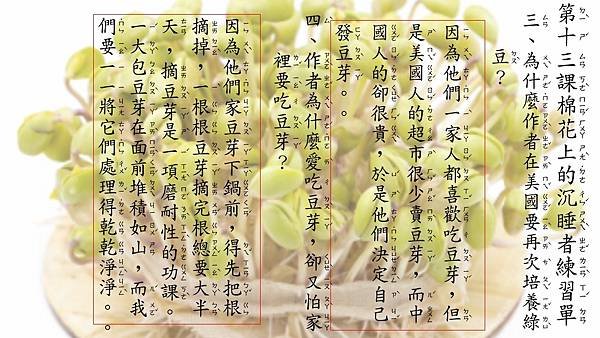 第十三課棉花上的沉睡者練習單
三、為什麼作者在美國要再次培養綠
豆？
因為他們一家人都喜歡吃豆芽，但
是美國人的超市很少賣豆芽，而中
國人的卻很貴，於是他們決定自己
發豆芽。。
四、作者為什麼愛吃豆芽，卻又怕家
裡要吃豆芽？
因為他們家豆芽下鍋前，得先把根
摘掉，一根根豆芽摘完根總要大半
天，摘豆芽是一項磨耐性的功課。
一大包豆芽在面前堆積如山，而我
們要一一將它們處理得乾乾淨淨。。